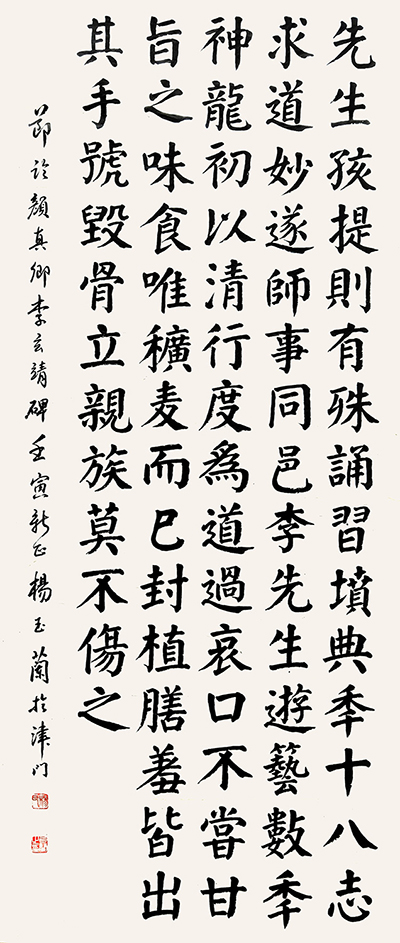 先生孩提則有殊誦習墳典秊十八志
求道妙遂師事同邑李先生遊藝數秊
神龍初以清行度爲道過哀口不嘗甘
旨之味食唯穬麦而已封植膳羞皆出
其手號毀骨立親族莫不傷之
節臨顏真卿李玄靖碑壬寅新正楊玉蘭於津門